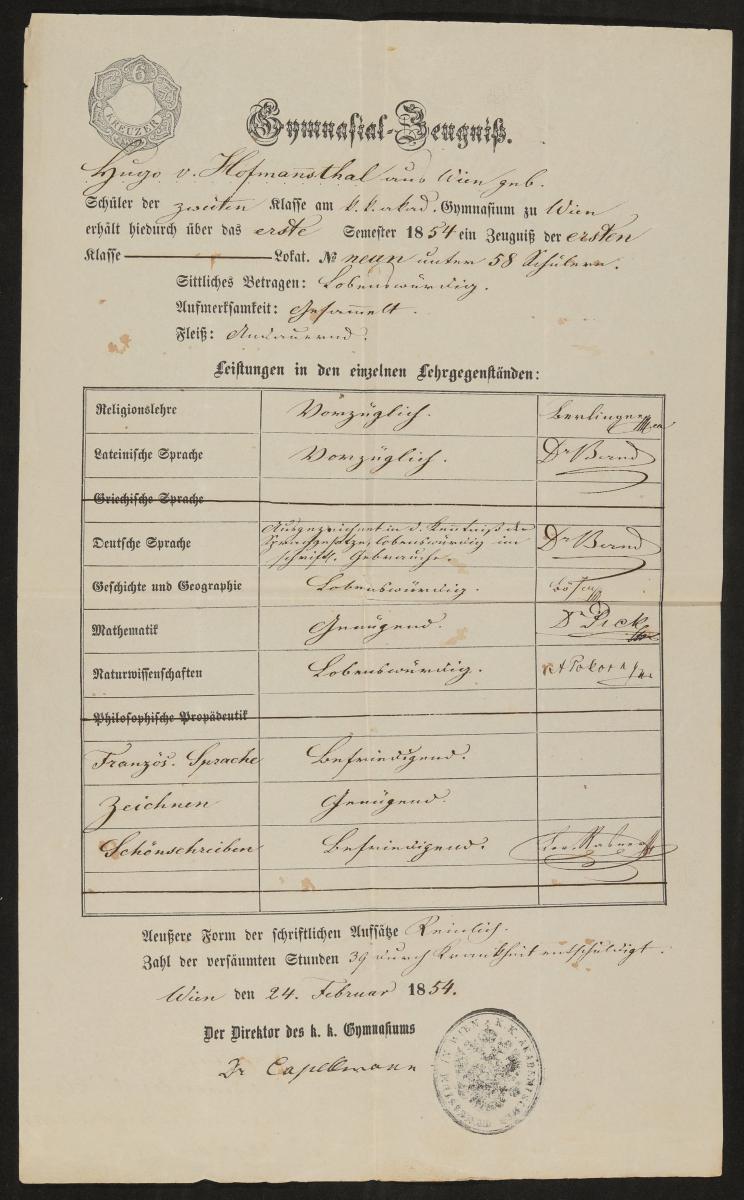 6
KREUZER
Gymnasial-Zeugniß.
Hugo v. Hofmannsthal aus Wien geb.
Schüler der zweiten Klasse am k. k. akad. Gymnasium zu Wien
erhält hiedurch über das erste Semester 1854 ein Zeugniß der ersten
Klasse Lokat. No neun unter 58 Schülern.
Sittliches Betragen: Lobenswürdig.
Aufmerksamkeit: Gesammelt.
Fleiß: Andauernd.
Leistungen in den einzelnen Lehrgegenständen:
Religionslehre Vorzüglich.
Lateinische Sprache Vorzüglich. Dr Bernd
Griechische Sprache
Deutsche Sprache Ausgezeichnet in d. Kenntniß der
Sprachgesetze, lobenswürdig im
schriftl. Gebrauche. Dr Bernd
Geschichte und Geographie Lobenswürdig.
Mathematik Genügend. Dr Pick
Naturwissenschaften Lobenswürdig. A Pokorny
Philosophische Propädeutik
Französ. Sprache Befriedigend.
Zeichnen Genügend.
Schönschreiben Befriedigend.
Aeußere Form der schriftlichen Aufsätze Reinlich.
Zahl der versäumten Stunden 39 durch Krankheit entschuldigt.
Wien den 24. Februar 1854.
Der Direktor des k. k. Gymnasiums
Dr Capellmann
K. K. AKADEMISCHES GYMNASIUM IN WIEN